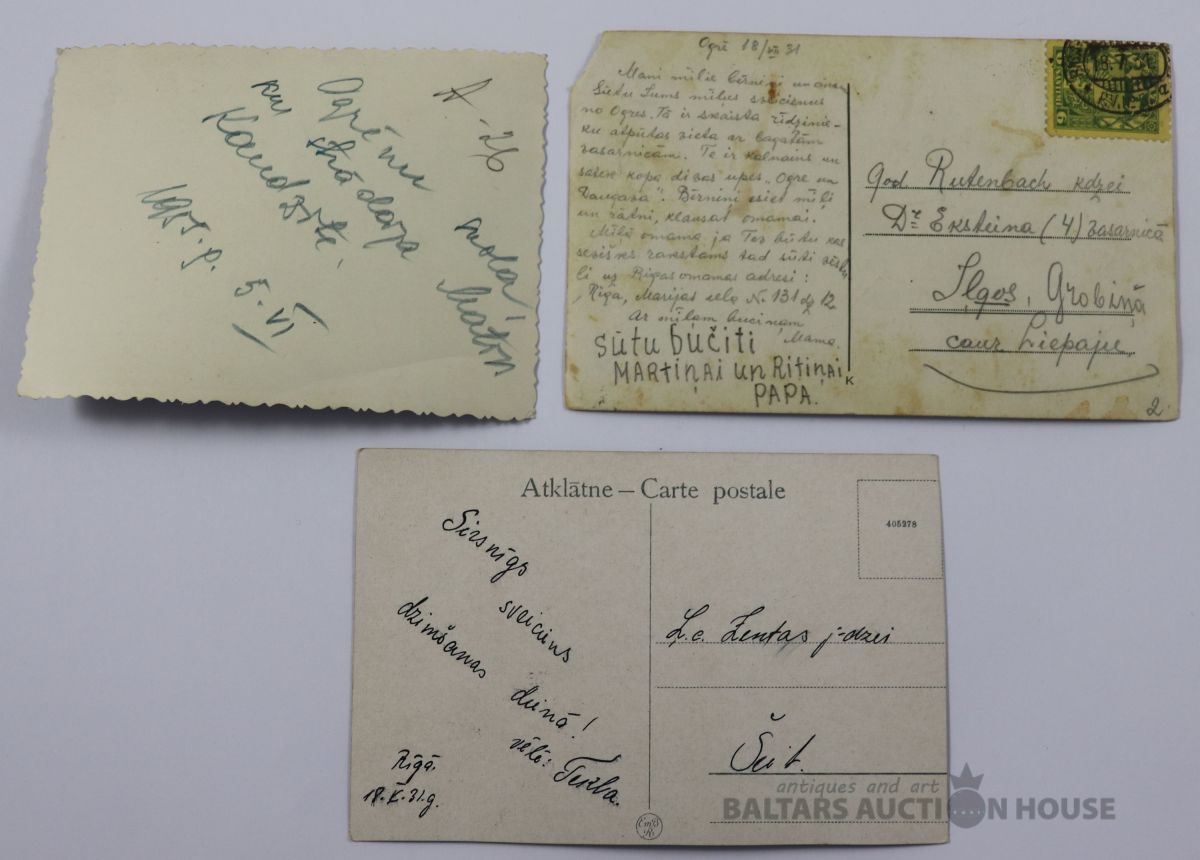 A-26
Ogrē nu skolā
kur strādāja
Kaudzītē,
1955.g. 5.VI
Ogrē 18/VII 31
Mani mīlie bērniņi
Sietu Jums mīļus sveicienus
no Ogres. Tā ir skaista rīdzinie-
ku atpūtas vieta ar bagatām
vasarnicām. Te ir kalnains un
kopa divas upes „Ogre un
Daugava". Bērniņi esiet mīļi
un rātni, klausat omamai.
Mīļā omama ja Tev būtu kas
sevišķs rakstams tad sūti
uz Rīgas omamas adresi:
Rīga, Marijas ielā N. 131 dz 12.
Ar mīļam bučiņam
Mama.
SŪTU BUČITI
MARTIŅAI un RITIŅAI
PAPA.
K
God Rutenbach kdzei
Dr. Eksteina (4) vasarnicā
Iļgos, Grobiņā
caur Liepaju
2.
Atklātne — Carte postale
405278
Sirsnīgs
sveiciens
dzimšanas dienā!
vēlē: Tekla.
Rīgā.
18.X.31.g.
L.c. Zentas j-dzei
Šeit.
antiques and art
BALTARS AUCTION HOUSE